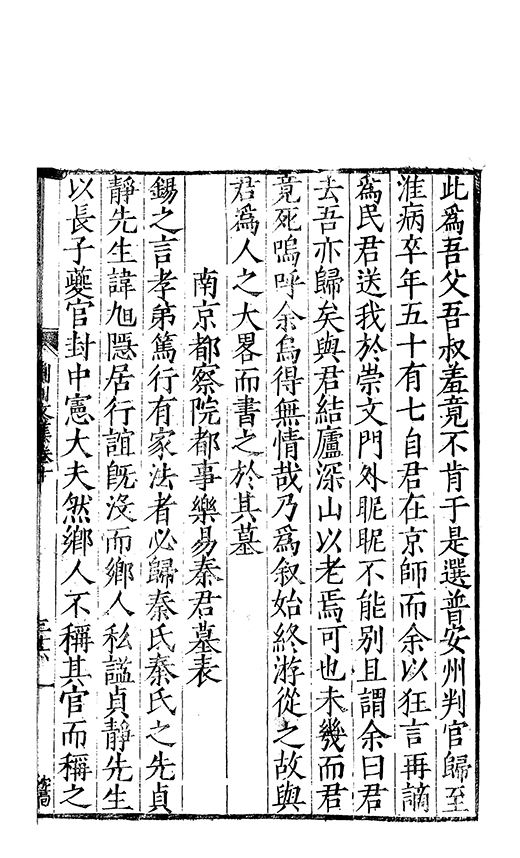 此爲吾父吾叔羞竟不肯于是選普安州判官歸至
淮病卒年五十有七自君在京師而余以狂言再謫
爲民君送我於崇文門外昵昵不能别且謂余曰君
去吾亦歸矣與君結廬深山以老焉可也未幾而君
竟死嗚呼余烏得無情哉乃爲叙始終游從之故與
君爲人之大畧而書之於其墓
南京都察院都事樂易秦君墓表
錫之言孝弟篤行有家法者必歸秦氏秦氏之先貞
靜先生諱旭隱居行誼旣沒而鄉人私謚貞靜先生
以長子夔官封中憲大夫然鄉人不稱其官而稱之
文集卷十